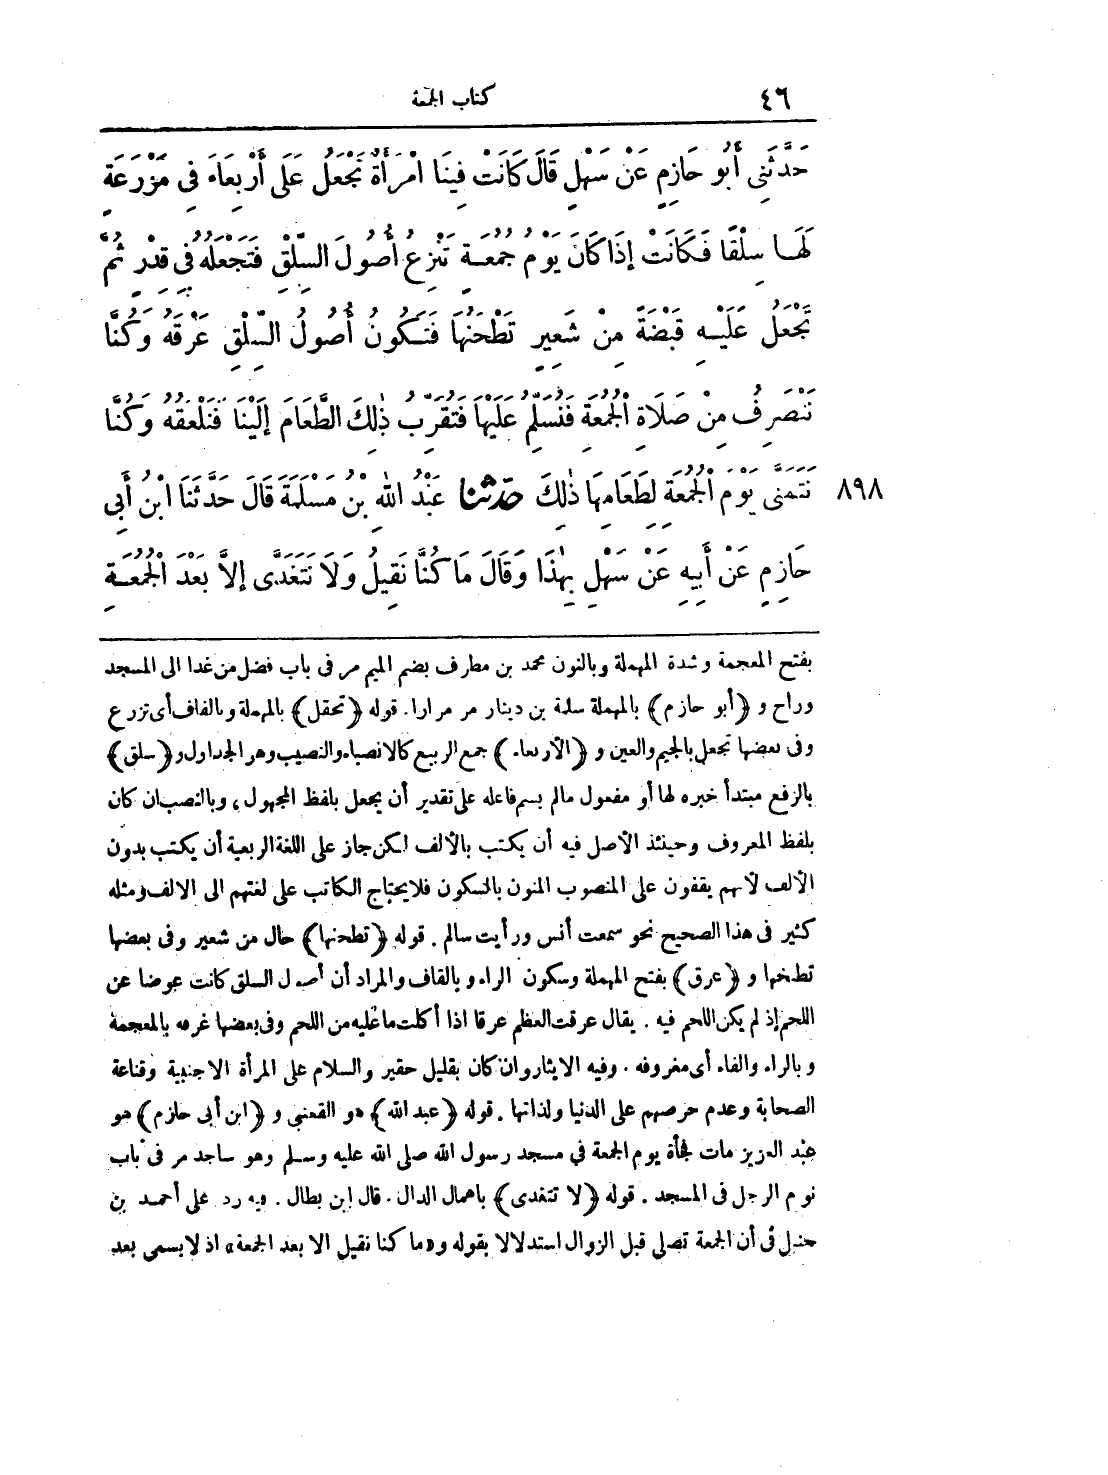 ٤٦ كتاب الجمعة
حَدَّثَنِي أَبُو حَازِمٍ عَنْ سَهْلٍ قَالَ كَانَتْ فِينَا امْرَأَةٌ تَجْعَلُ عَلَى أَرْبِعَاءَ فِي مَزْرَعَةٍ
لَهَا سِلْقًا فَكَانَتْ إِذَا كَانَ يَوْمُ جُمُعَةٍ تَنْزِعُ أُصُولَ السِّلْقِ فَتَجْعَلُهُ فِي قِدْرٍ ثُمَّ
تَجْعَلُ عَلَيْهِ قَبْضَةً مِنْ شَعِيرٍ تَطْحَنُهَا فَتَكُونُ أُصُولُ السِّلْقِ عَرْقَهُ وَكُنَّا
نَنْصَرِفُ مِنْ صَلَاةِ الْجُمُعَةِ فَنُسَلِّمُ عَلَيْهَا فَتُقَرِّبُ ذٰلِكَ الطَّعَامَ إِلَيْنَا فَنَلْعَقُهُ وَكُنَّا
٨٩٨ نَتَمَنَّى يَوْمَ الْجُمُعَةِ لِطَعَامِهَا ذٰلِكَ حدثنا عَبْدُ اللهِ بْنُ مَسْلَمَةَ قَالَ حَدَّثَنَا ابْنُ أَبِي
حَازِمٍ عَنْ أَبِيهِ عَنْ سَهْلٍ بِهٰذَا وَقَالَ مَا كُنَّا نَقِيلُ وَلَا نَتَغَدَّى إِلَّا بَعْدَ الْجُمُعَةِ
بفتح المعجمة وشدة المهملة وبالنون محمد بن مطارف بضم الميم مر فى باب فضل من غدا الى المسجد
وراح و ﴿أبو حازم﴾ بالمهملة سلمة بن دينار مر مرارا. قوله ﴿تحقل﴾ بالمهملة وبالقاف أى تزرع
وفى بعضها تجعل بالجيم والعين و ﴿الأربعاء﴾ جمع الربيع كالانصباء والنصيب وهو الجداول و﴿سلق﴾
بالرفع مبتدأ خبره لها أو مفعول مالم يسم فاعله على تقدير أن يجعل بلفظ المجهول، وبالنصب ان كان
بلفظ المعروف وحينئذ الأصل فيه أن يكتب بالألف لكن جاز على اللغة الربعية أن يكتب بدون
الألف لأنهم يقفون على المنصوب المنون بالسكون فلا يحتاج الكاتب على لغتهم الى الالف ومثله
كثير فى هذا الصحيح نحو سمعت أنس ورأيت سالم. قوله ﴿تطحنها﴾ حال من شعير وفى بعضها
تطبخها و ﴿عرق﴾ بفتح المهملة وسكون الراء وبالقاف والمراد أن أصول السلق كانت عوضا عن
اللحم إذ لم يكن اللحم فيه. يقال عرقت العظم عرقا اذا أكلت ما عليه من اللحم وفى بعضها غرفه بالمعجمة
وبالراء والفاء أى مغروفه. وفيه الايثار وان كان بقليل حقير والسلام على المرأة الاجنبية وقناعة
الصحابة وعدم حرصهم على الدنيا ولذاتها. قوله ﴿عبد الله﴾ هو القعنبى و ﴿ابن أبى حازم﴾ هو
عبد العزيز مات فجأة يوم الجمعة في مسجد رسول الله صلى الله عليه وسلم وهو ساجد مر فى باب
نوم الرجل فى المسجد. قوله ﴿لا نتغدى﴾ باهمال الدال. قال ابن بطال. فيه رد على أحمد بن
حنبل فى أن الجمعة تصلى قبل الزوال استدلالا بقوله و«ما كنا نقيل الا بعد الجمعة» اذ لا يسمى بعد